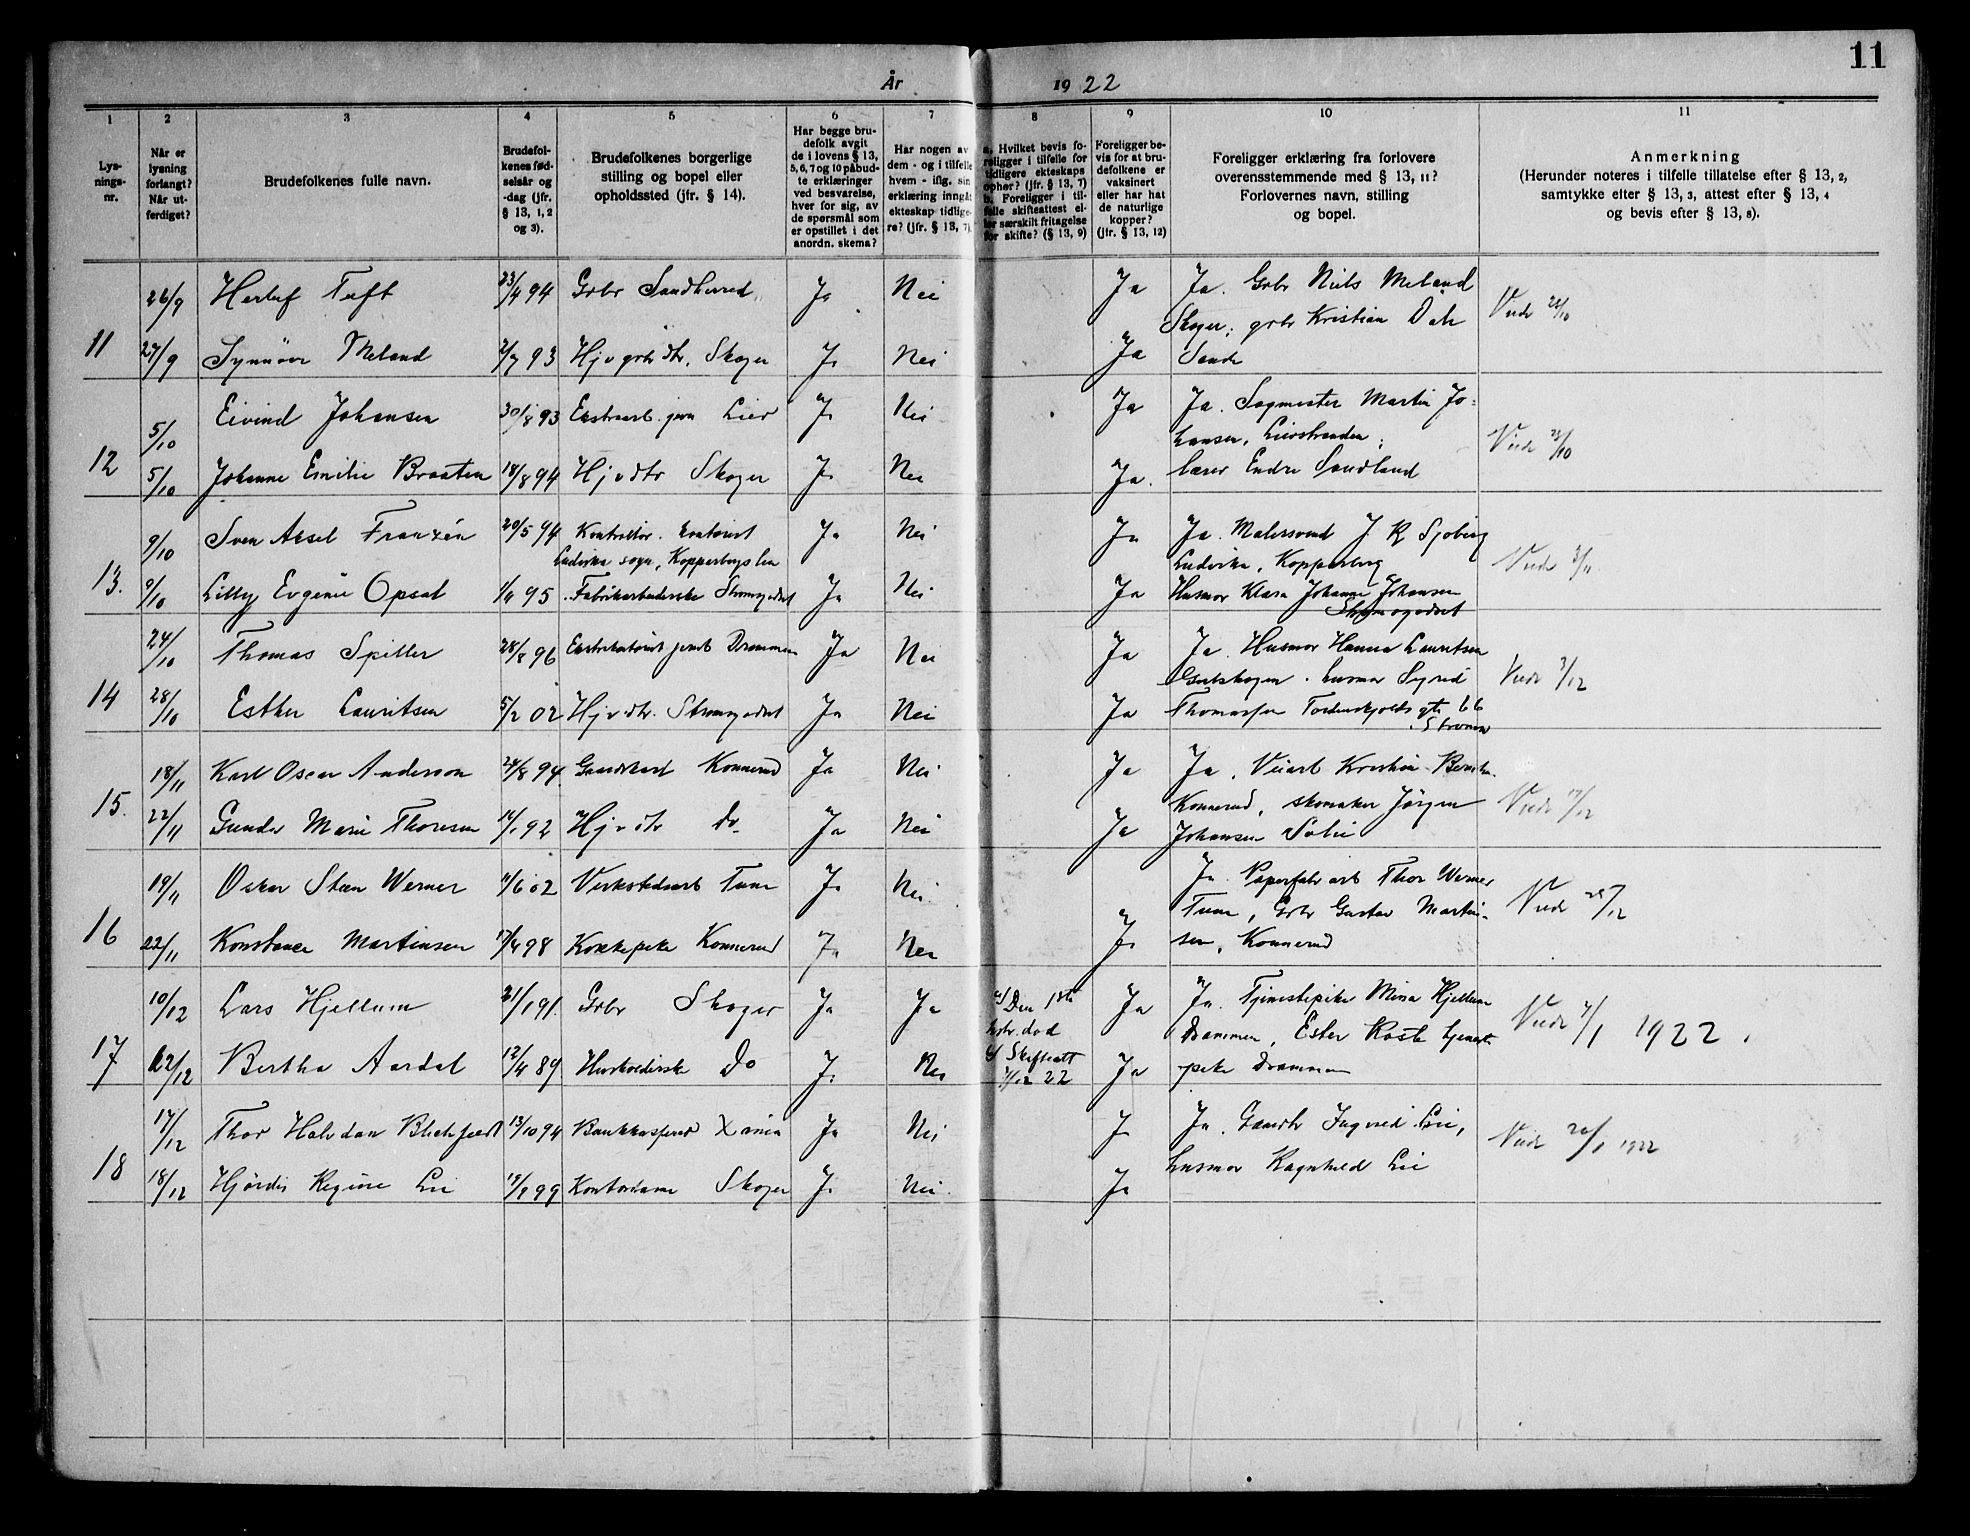 11
År 1922
1 2 3 4 5 6 7 8 9 10 11
Lys-
nings-
nr.
Når er
lysning
forlangt?
Når ut-
ferdiget?
Brudefolkenes fulle navn.
Brudefol-
kenes fød-
selsår og
-dag (jfr.
§ 13, 1, 2
og 3).
Brudefolkenes borgerlige
stilling og bopel eller
opholdssted (jfr. § 14).
Har begge bru-
defolk avgit
de i lovens § 13,
5, 6, 7 og 10 påbud-
te erklæringer
ved besvarelse,
hver for sig, av
de spørsmål som
er opstillet i det
anordn. skema?
Har nogen av
dem - og i tilfelle
hvem - iflg. sin
erklæring inngått
ekteskap tidlige-
re? (jfr. § 13, 7).
a. Hvilket bevis fo-
religger i tilfelle for
tidligere ekteskaps
ophør? (jfr. § 13, 7)
b. Foreligger i til-
felle skifteattest el-
ler særskilt fritagelse
for skifte? (§ 13, 9)
Foreligger be-
vis for at bru-
defolkene er
vaksinert
eller har hat
de naturlige
kopper?
(jfr. § 13, 12)
Foreligger erklæring fra forlovere
overensstemmende med § 13, 11?
Forlovernes navn, stilling
og bopel.
Anmerkning
(Herunder noteres i tilfelle tillatelse efter § 13, 2,
samtykke efter § 13, 3, attest efter § 13, 4
og bevis efter § 13, 8).
26/9 Herluf Tuft 23/4 94 Gbr Sandherred Ja Nei Ja Ja. Gbr Niels Meland
Skoger; gbr Kristian Dale
11 27/9 Synnøve Meland 2/7 93 Hjv gbr dtr. Skoger Ja Nei Ja Sande
Viede 28/10
5/10 Eivind Johansen 30/8 93 Ekstraarb. jern Lier Ja Nei Ja Ja. Sagmester Martin Jo-
hansen, Lierstranden;
12 5/10 Johanne Emilie Braaten 18/8 94 Hjv dtr Skoger Ja Nei Ja. lærer Endre Sandland
Viede 28/10
9/10 Sven Aksel Franzén 20/5 94 Kontrollør. kontorist Ja Nei Ja Ja. Malersvend J R Sjöberg
Ludvika sogn, Kopperbergs len
Ludvika, Kopperberg
13. 9/10 Lilly Evgenie Opsal 95 Fabrikarbeiderske Strømsgodset Ja Nei Ja Husmor Klara Johanne Johansen
Strømsgodset
Viede 3/11.
24/10 Thomas Spiller 28/8 96 Drammen Ja Nei Ja Ja. Husmor Hanna Lauritsen
Gulskogen. husmor Sigrid
14 28/10 Esther Lauritsen 5/2 02 Hjv. dtr. Strømsgodset Ja Nei Ja Thomassen Tordenskjolds gt. 66
Strømsø
Viede 3/12
18/11 Karl Oscar Anderson 24/8 94 Gaardskarl Konnerud Ja Nei Ja Ja, Veiarb Kristian
Konnerud, skomaker Jørgen
15. 22/11 Gunda Marie Thoresen 92 Hjv dtr Do Ja Nei Ja Johansen Solie
Viede 17/12
19/11 Oskar Steen Werner 11/6 02 Verkstedsarb Tune Ja Nei. Ja. Papirfabr arb Thor Werner
Tune, Gbr Gustav Martin-
16 22/11 Konstance Martinsen 17/4 98 Kokkepike Konnerud Ja Nei Ja sen, Konnerud
Viede 28/12
10/12 Lars Hjellum 21/1 91. Gbr Skoger Ja Ja a) Den 1ste Ja Ja. Tjenestepike Mina Hjellum
hstr. død
Drammen, Ester Roste tjeneste
17 22/12 Bertha Aardal 12/4 89 Husholderske Do Ja Nei b) Skifteatt Ja pike Drammen
22
Viede 7/1 1922.
17/12 Thor Halvdan 13/10 94 Bankkasserer Xania Ja Nei Ja Ja. Gaardbr Ingvald Lie,
husmor Ragnhild Lie
18 18/12 Hjørdis Regine Lie 99 Kontordame Skoger Ja Nei. Ja
Viede 20/1 1922